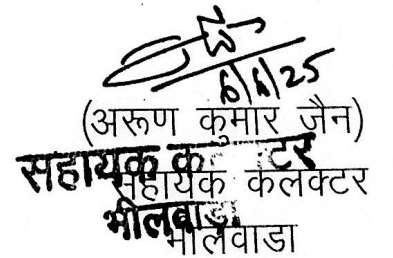 6/6/25
(अरूण कुमार जैन)
सहायक क टर
सहायक कलक्टर
भीलवाडा
भीलवाडा